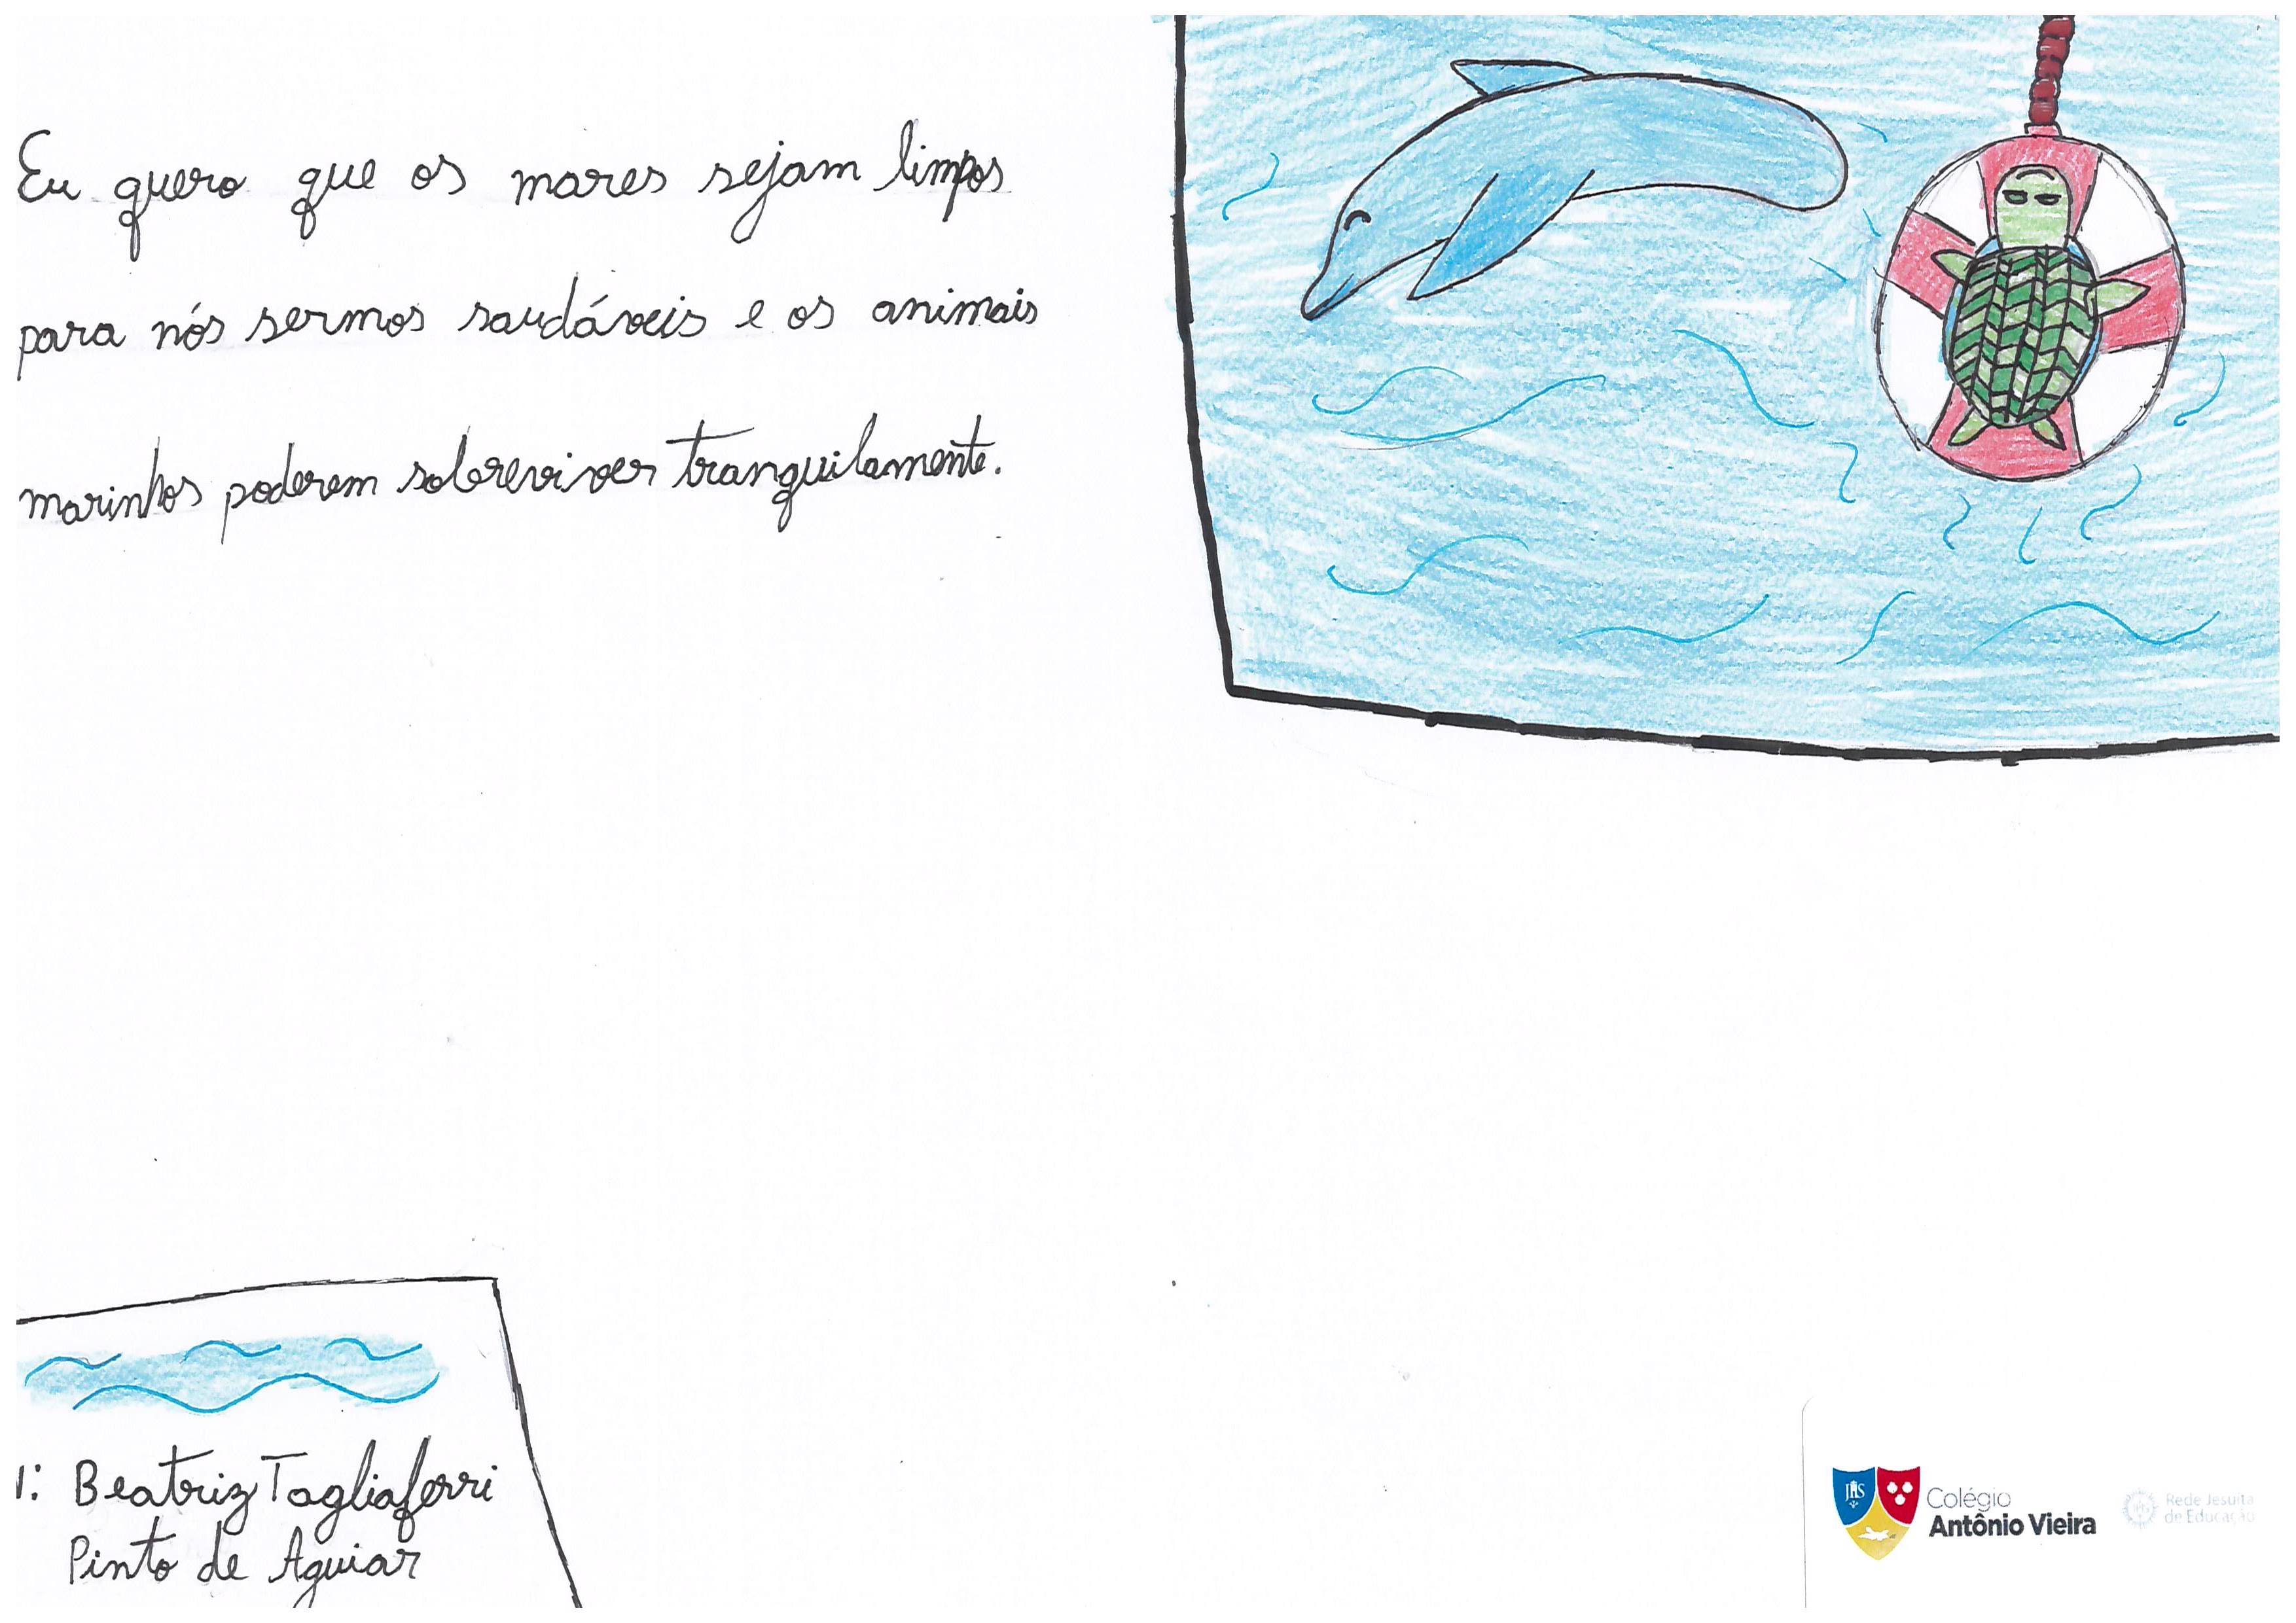 Eu quero que os mares sejam limpos
para nós sermos saudáveis e os animais
marinhos poderem sobreviver tranquilamente.
1: Beatriz Tagliaferri
Pinto de Aguiar
JHS
Colégio
Antônio Vieira
Rede Jesuíta
de Educação